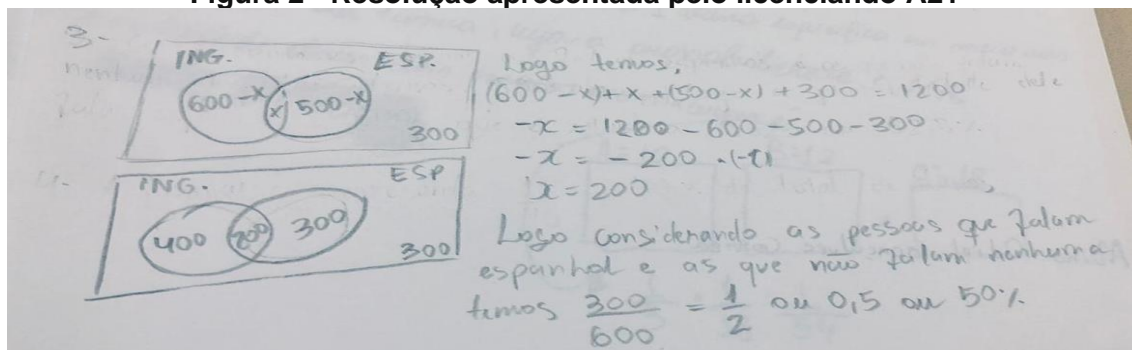 Figura 2 - Resolução apresentada pelo licenciando A21
3-
ING. ESP.
600-x x 500-x
300
Logo temos,
(600-x)+x+(500-x)+300=1200
-x = 1200-600-500-300
-x = -200 .(-1)
x = 200
ING. ESP
400 200 300
300
Logo considerando as pessoas que falam
espanhol e as que não falam nenhuma
temos 300/600 = 1/2 ou 0,5 ou 50%